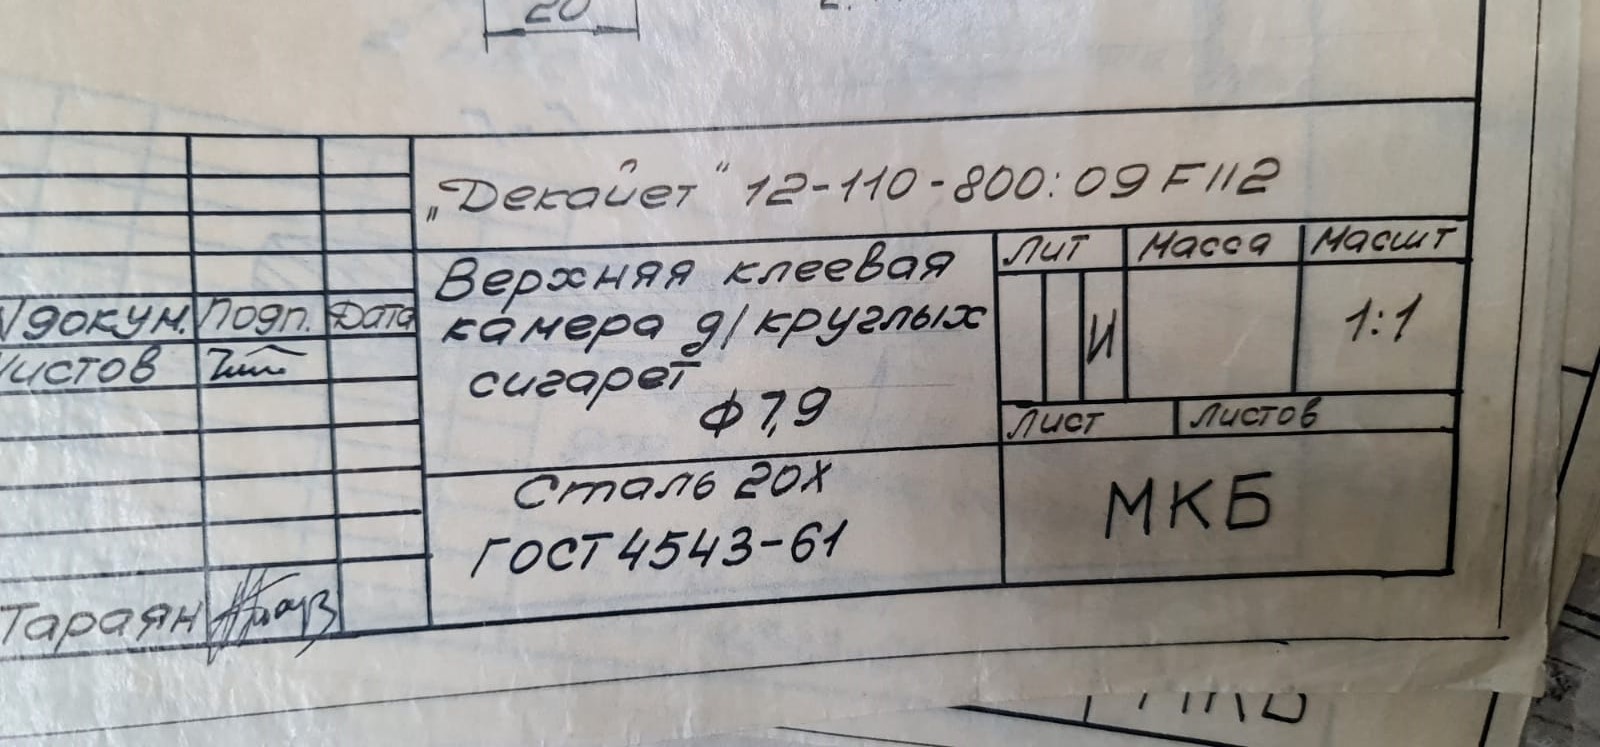 20
„Декайет" 12-110-800:09 F112
Верхняя клеевая
камера д/круглых
сигарет
ф 7,9
Лит Масса Масшт
И 1:1
Лист Листов
Сталь 20Х
ГОСТ 4543-61
МКБ
№докум. Подп. Дата
Чистов
Тараян